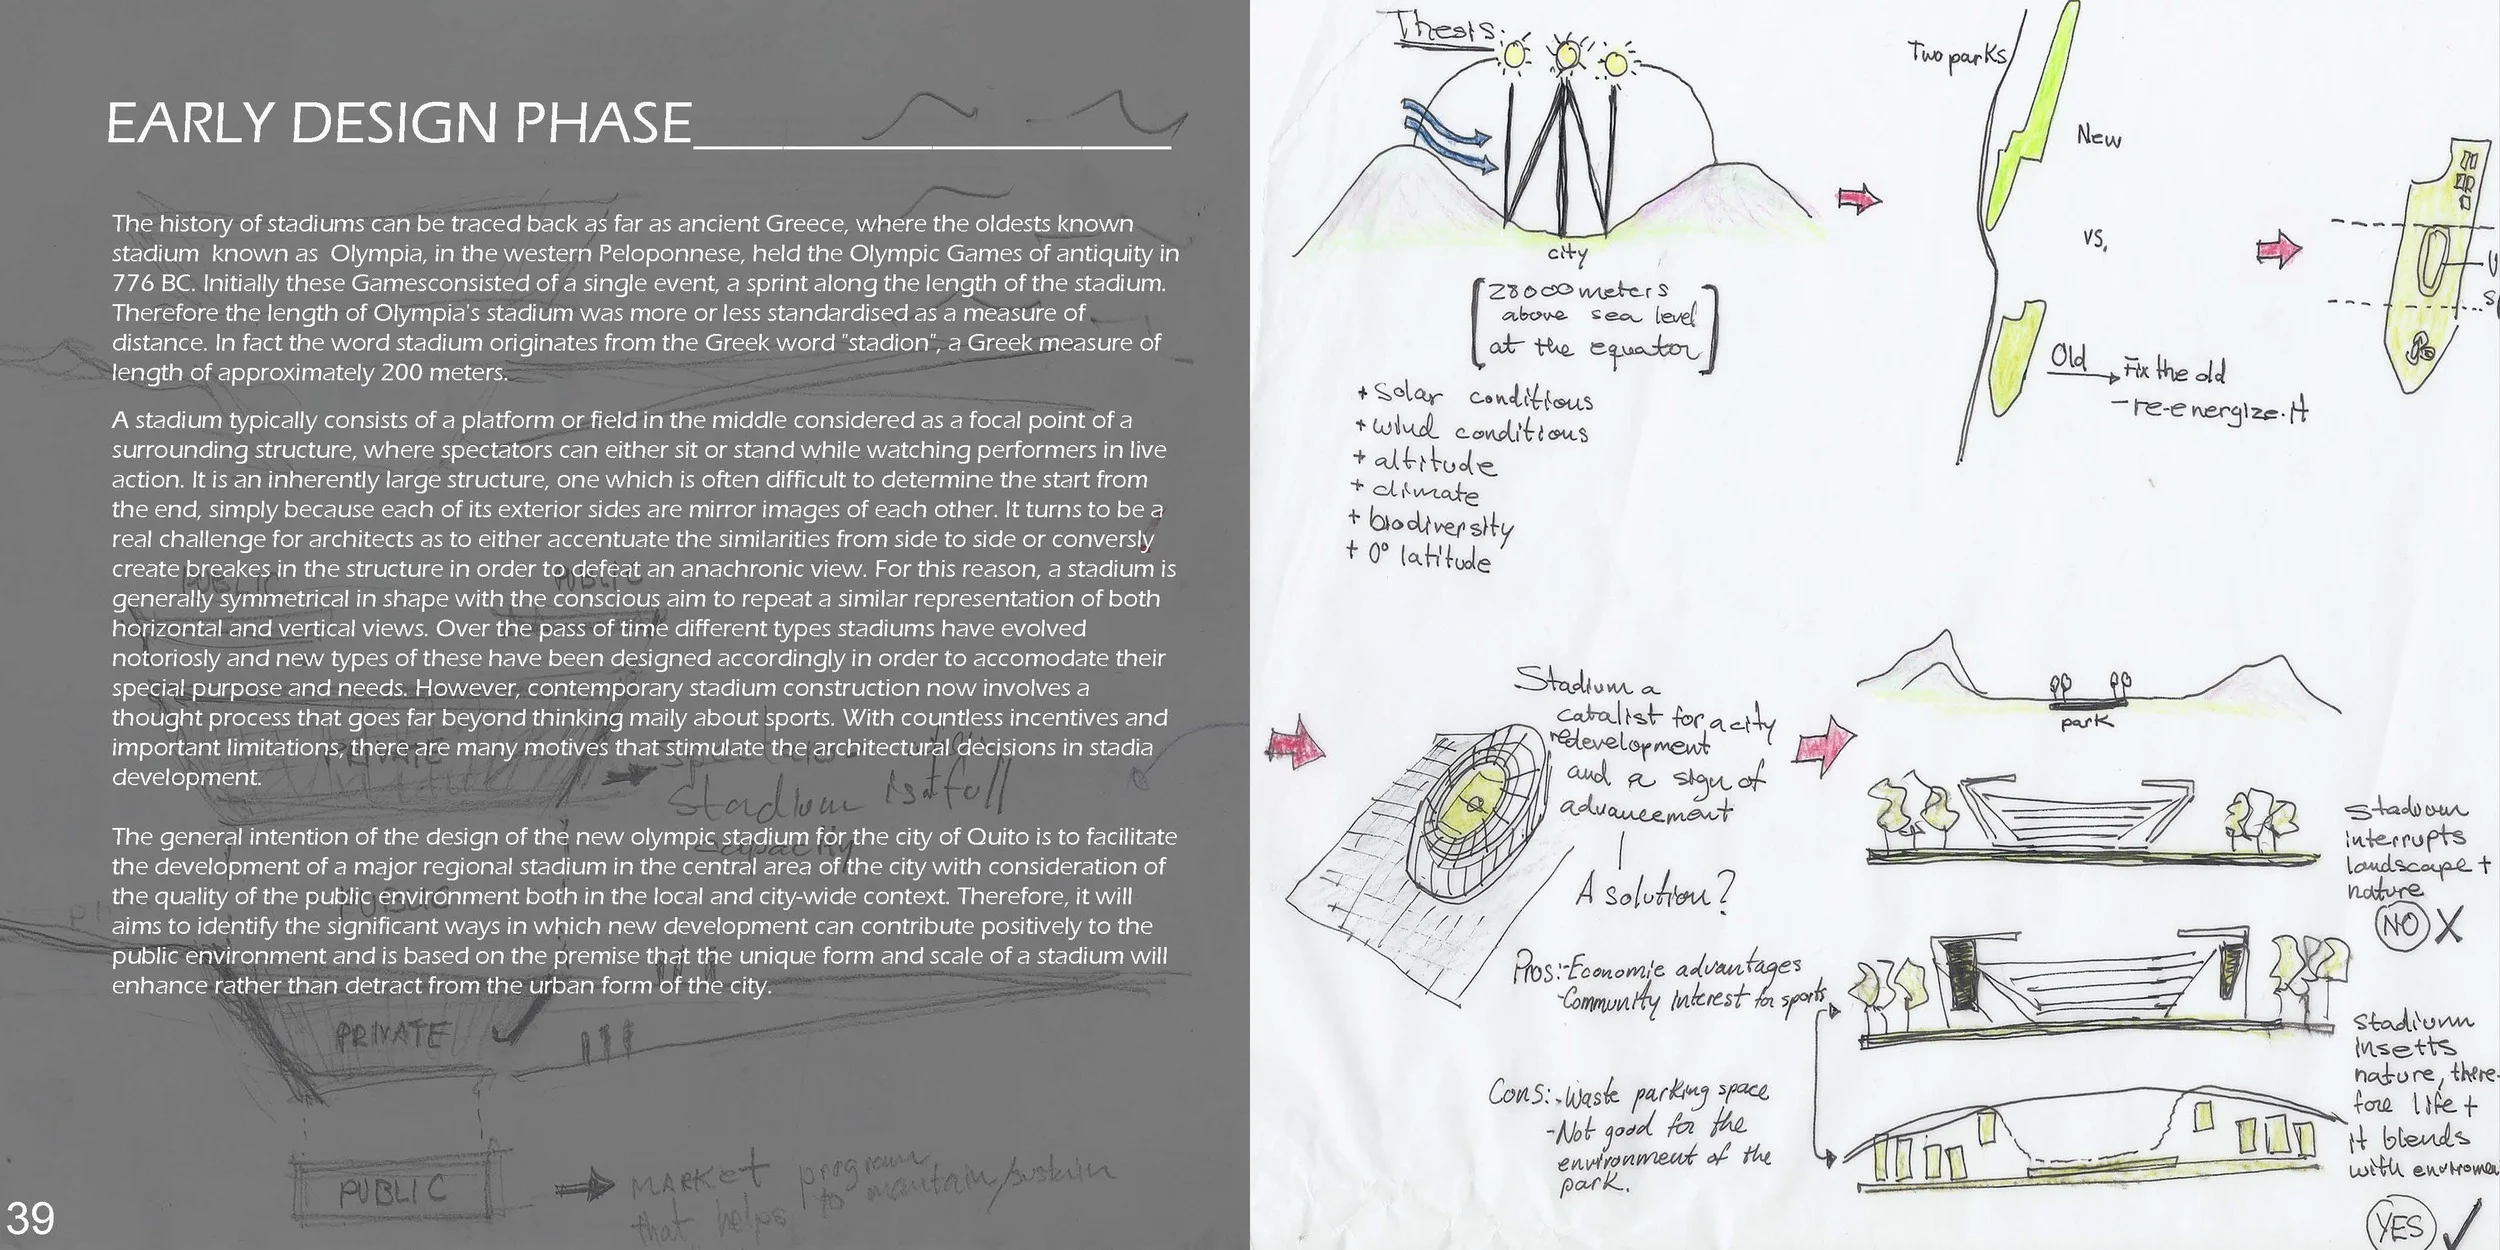 EARLY DESIGN PHASE
The history of stadiums can be traced back as far as ancient Greece, where the oldests known
stadium known as Olympia, in the western Peloponnese, held the Olympic Games of antiquity in
776 BC. Initially these Gamesconsisted of a single event, a sprint along the length of the stadium.
Therefore the length of Olympia's stadium was more or less standardised as a measure of
distance. In fact the word stadium originates from the Greek word "stadion", a Greek measure of
length of approximately 200 meters.
A stadium typically consists of a platform or field in the middle considered as a focal point of a
surrounding structure, where spectators can either sit or stand while watching performers in live
action. It is an inherently large structure, one which is often difficult to determine the start from
the end, simply because each of its exterior sides are mirror images of each other. It turns to be a
real challenge for architects as to either accentuate the similarities from side to side or conversly
create breakes in the structure in order to defeat an anachronic view. For this reason, a stadium is
generally symmetrical in shape with the conscious aim to repeat a similar representation of both
horizontal and vertical views. Over the pass of time different types stadiums have evolved
notoriosly and new types of these have been designed accordingly in order to accomodate their
special purpose and needs. However, contemporary stadium construction now involves a
thought process that goes far beyond thinking maily about sports. With countless incentives and
important limitations, there are many motives that stimulate the architectural decisions in stadia
development.
The general intention of the design of the new olympic stadium for the city of Quito is to facilitate
the development of a major regional stadium in the central area of the city with consideration of
the quality of the public environment both in the local and city-wide context. Therefore, it will
aims to identify the significant ways in which new development can contribute positively to the
public environment and is based on the premise that the unique form and scale of a stadium will
enhance rather than detract from the urban form of the city.
PUBLIC
PUBLIC
PRIVATE
Stadium is at full
capacity
PUBLIC
PRIVATE
PUBLIC
MARKET program
that helps to maintain/sustain
39
Thesis:
city
28000 meters
above sea level
at the equator
+ Solar conditions
+ wind conditions
+ altitude
+ climate
+ biodiversity
+ 0° latitude
Two parks
New
vs.
Old
Fix the old
- re-energize it
Stadium a
catalist for a city
redevelopment
and a sign of
advancement
A solution?
Pros: - Economic advantages
- Community interest for sports
Cons: - Waste parking space
- Not good for the
environment of the
park.
park
Stadium
interrupts
landscape +
nature
NO X
Stadium
insetts
nature, there-
fore life +
it blends
with enviromen
YES